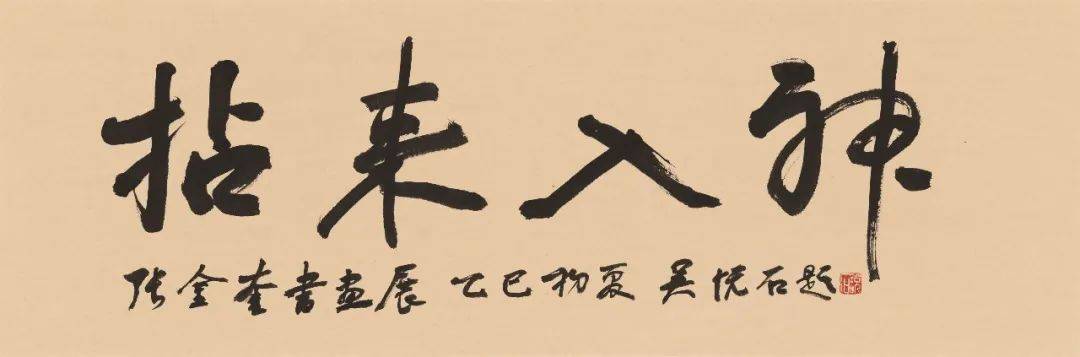 拈来入神
张金奎书画展 乙巳初夏 吴悦石题